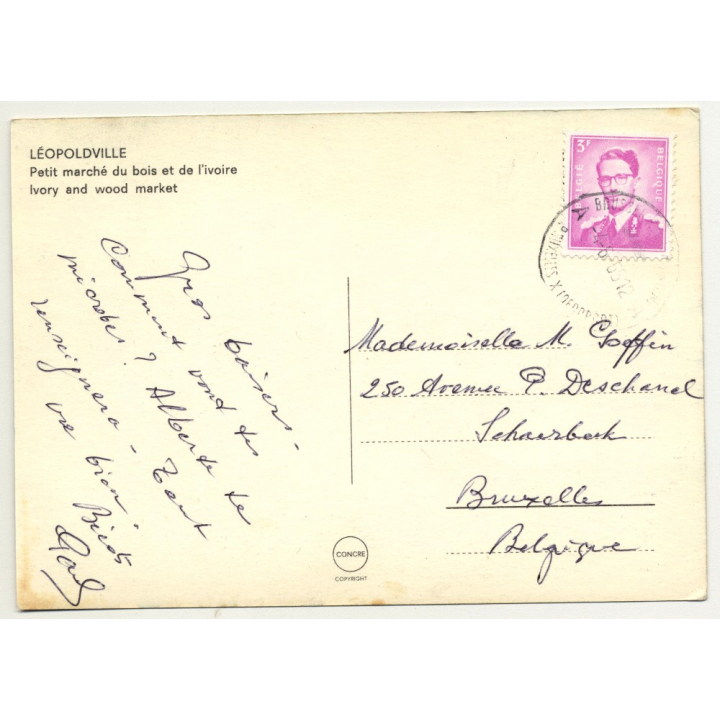 LÉOPOLDVILLE
Petit marché du bois et de l'ivoire
Ivory and wood market
3F
BELGIQUE
BELGIË
Gros baisers -
Comment vont tes
microbes ? Alberte te
renseignera - Tout
va bien -
Mademoiselle M. Goffin
250 Avenue P. Deschanel
Schaerbeek
Bruxelles
Belgique
CONCRE
COPYRIGHT